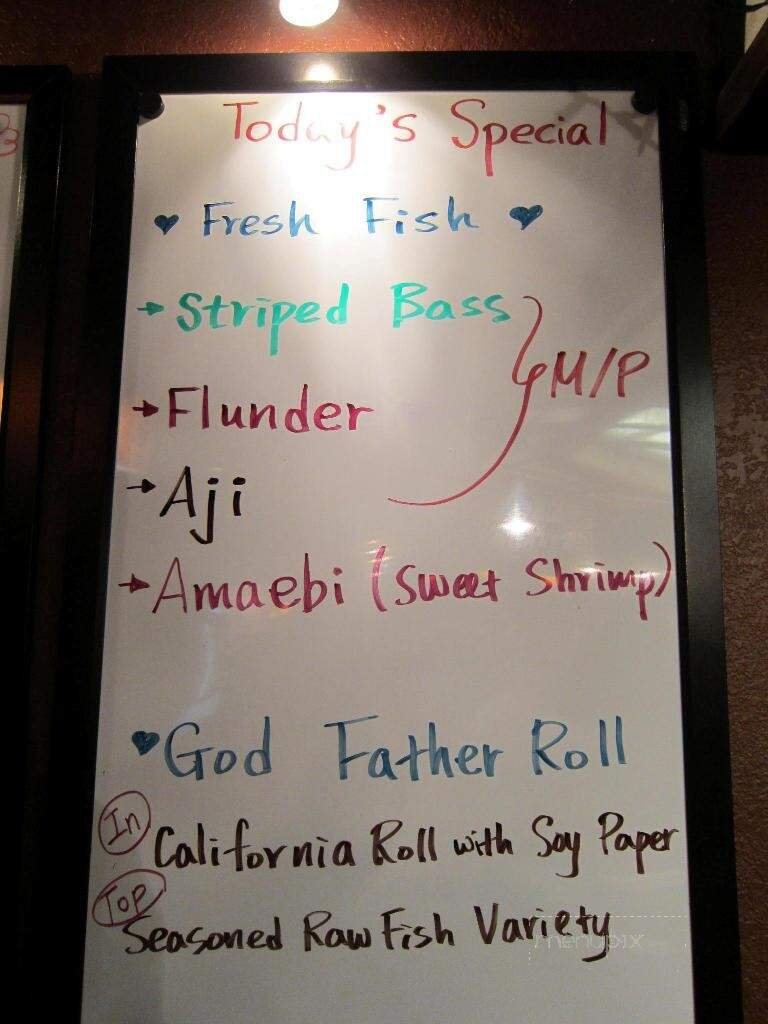 Today's Special
♥ Fresh Fish ♥
→ Striped Bass
M/P
→ Flunder
→ Aji
→ Amaebi (Sweet Shrimp)
♥ God Father Roll
In California Roll with Soy Paper
Top Seasoned Raw Fish Variety
menupix